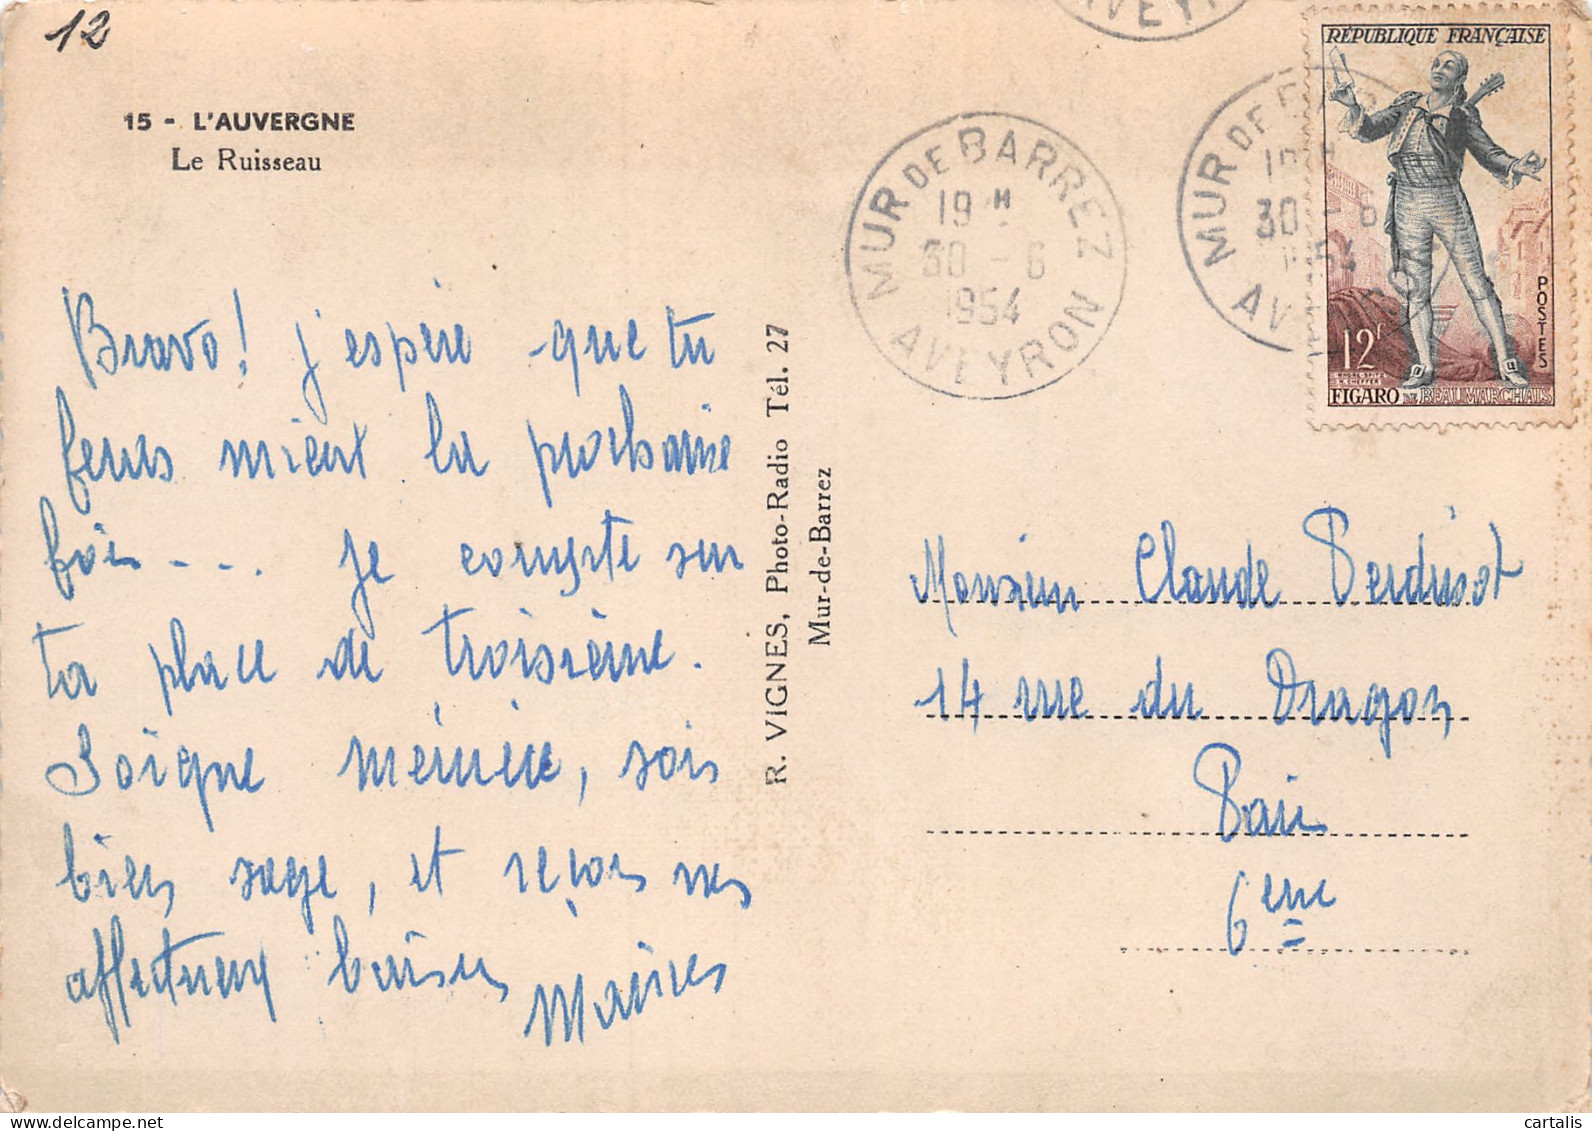 12
15 - L'AUVERGNE
Le Ruisseau
Bravo! j'espère que tu
feras mieux la prochaine
fois... Je compte sur
ta place de troisième.
Soigne mémée, sois
bien sage, et reçois nos
affectueux baisers
R. VIGNES, Photo-Radio Tél. 27
Mur-de-Barrez
AVEYRON
MUR DE BARREZ
19 H
30 - 6
1954
AVEYRON
MUR DE BAR
30 - 6
1954
RÉPUBLIQUE FRANÇAISE
POSTES
12F
FIGARO DE BEAUMARCHAIS
Monsieur Claude Perdrisot
14 rue du Dragon
Paris
6eme
cartalis
delcampe.net